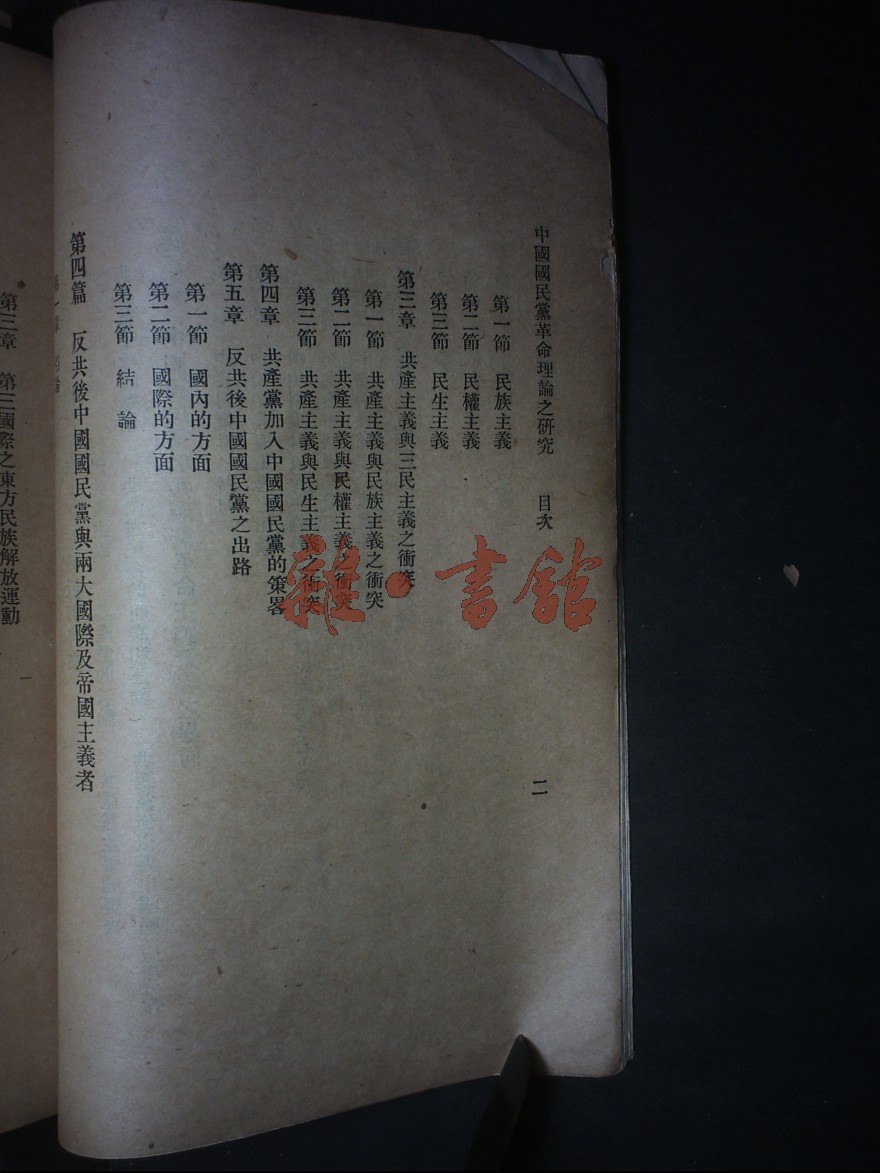 中國國民黨革命理論之研究　目次　二
第一節　民族主義
第二節　民權主義
第三節　民生主義
第三章　共產主義與三民主義之衝突
第一節　共產主義與民族主義之衝突
第二節　共產主義與民權主義之衝突
第三節　共產主義與民生主義之衝突
第四章　共產黨加入中國國民黨的策畧
第五章　反共後中國國民黨之出路
第一節　國內的方面
第二節　國際的方面
第三節　結論
第四篇　反共後中國國民黨與兩大國際及帝國主義者
第一章
第三國際之東方民族解放運動
雜·書館